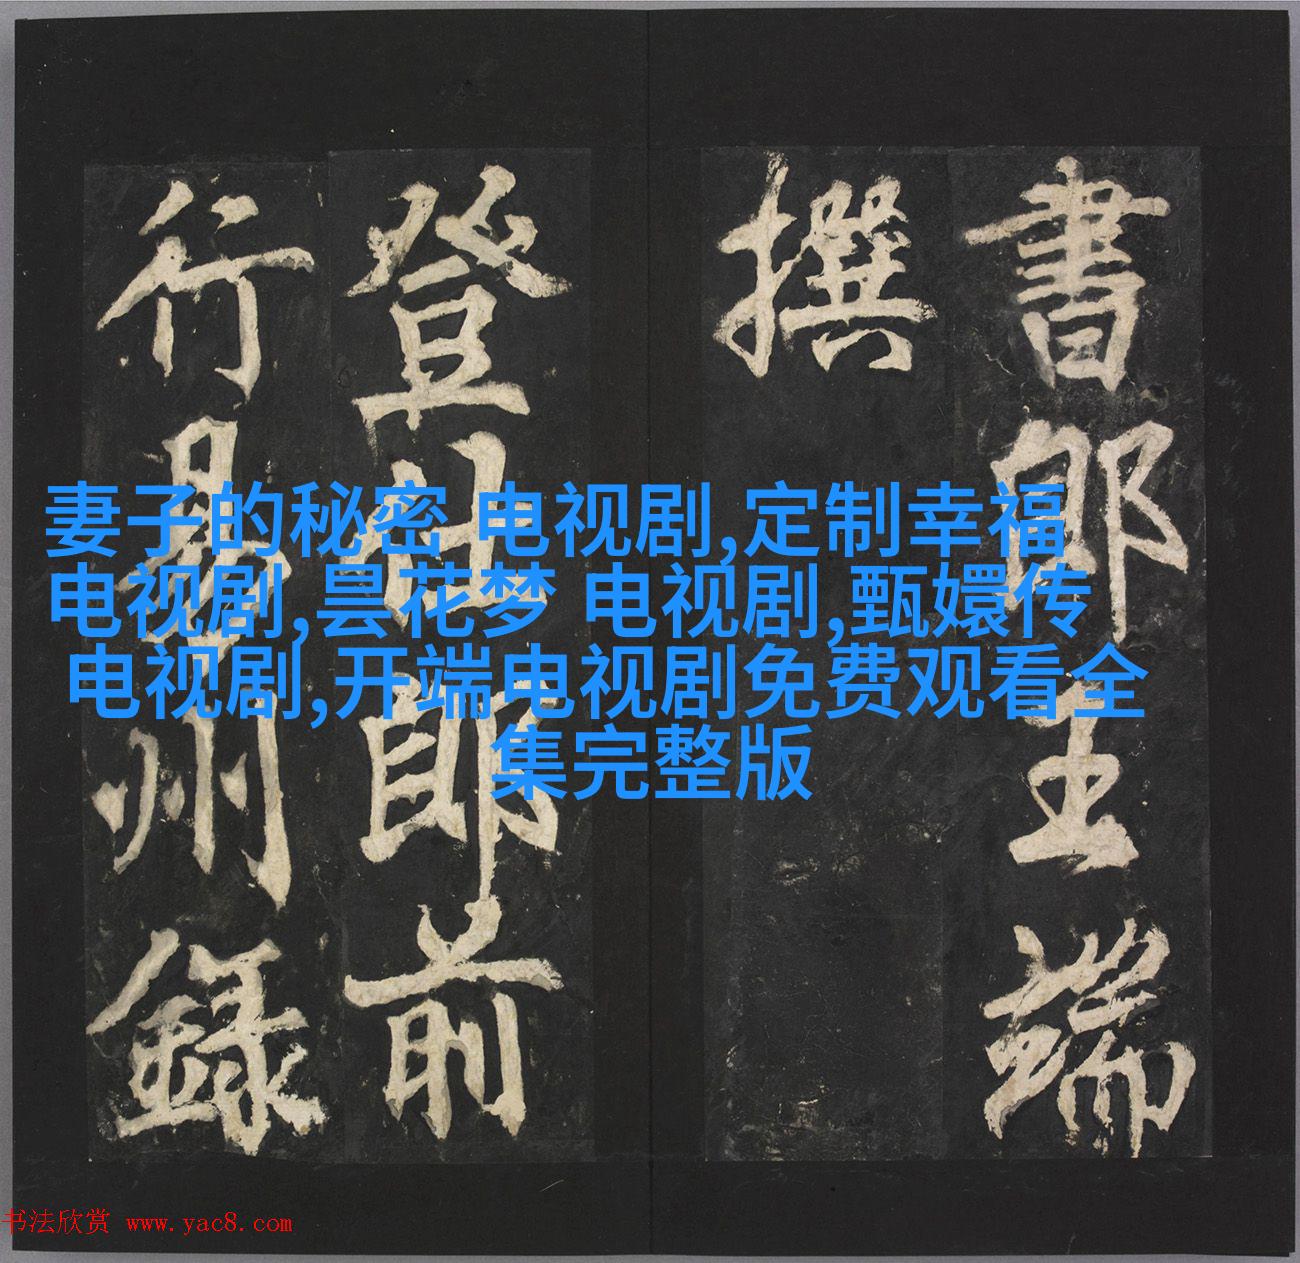 書郎王端
撰
登仕郎前
行易州錄
妻子的秘密 电视剧,定制幸福
电视剧,昙花梦 电视剧,甄嬛传
电视剧,开端电视剧免费观看全
集完整版
书法欣赏 www.yac8.com